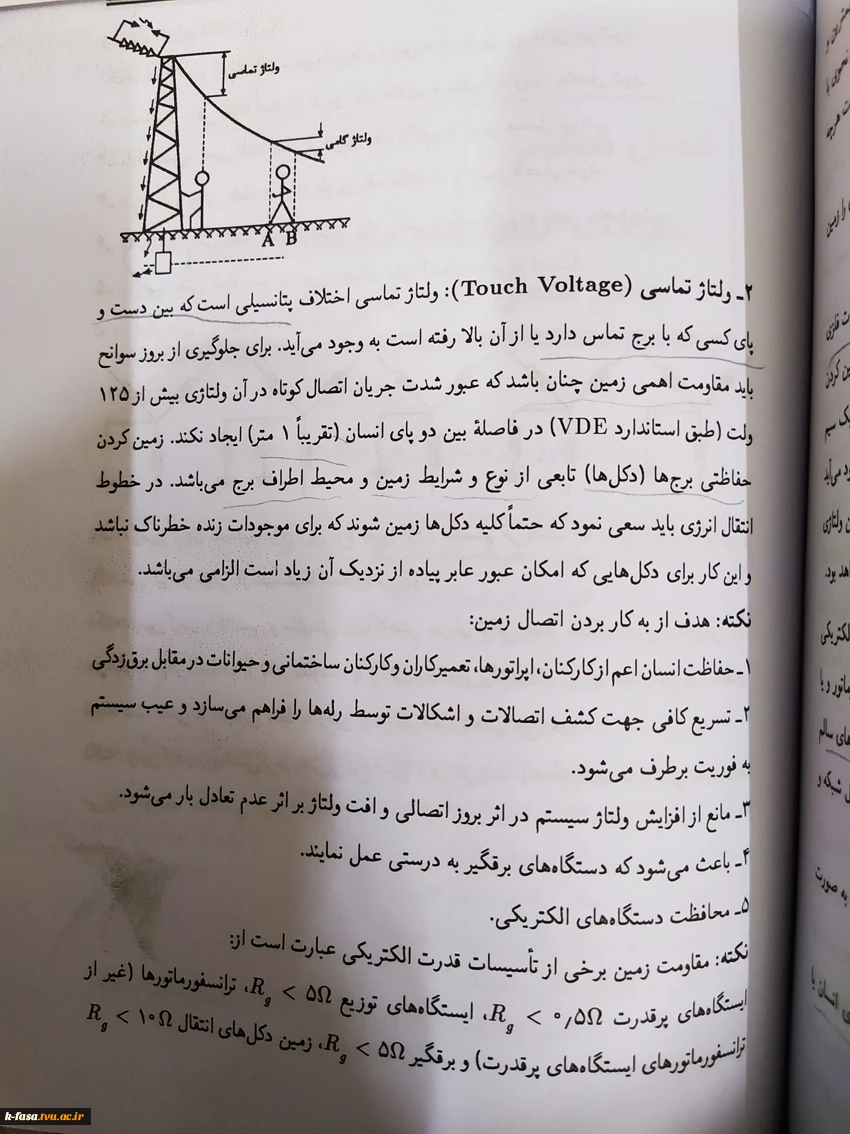 ولتاژ تماسی
ولتاژ گامی
A B
۲ـ ولتاژ تماسی (Touch Voltage): ولتاژ تماسی اختلاف پتانسیلی است که بین دست و
پای کسی که با برج تماس دارد یا از آن بالا رفته است به وجود می‌آید. برای جلوگیری از بروز سوانح
باید مقاومت اهمی زمین چنان باشد که عبور شدت جریان اتصال کوتاه در آن ولتاژی بیش از ۱۲۵
ولت (طبق استاندارد VDE) در فاصلهٔ بین دو پای انسان (تقریباً ۱ متر) ایجاد نکند. زمین کردن
حفاظتی برج‌ها (دکل‌ها) تابعی از نوع و شرایط زمین و محیط اطراف برج می‌باشد. در خطوط
انتقال انرژی باید سعی نمود که حتماً کلیه دکل‌ها زمین شوند که برای موجودات زنده خطرناک نباشد
و این کار برای دکل‌هایی که امکان عبور عابر پیاده از نزدیک آن زیاد است الزامی می‌باشد.
نکته: هدف از به کار بردن اتصال زمین:
۱ـ حفاظت انسان اعم از کارکنان، اپراتورها، تعمیرکاران و کارکنان ساختمانی و حیوانات در مقابل برق‌زدگی
۲ـ تسریع کافی جهت کشف اتصالات و اشکالات توسط رله‌ها را فراهم می‌سازد و عیب سیستم
به فوریت برطرف می‌شود.
۳ـ مانع از افزایش ولتاژ سیستم در اثر بروز اتصالی و افت ولتاژ بر اثر عدم تعادل بار می‌شود.
۴ـ باعث می‌شود که دستگاه‌های برقگیر به درستی عمل نمایند.
۵ـ محافظت دستگاه‌های الکتریکی.
نکته: مقاومت زمین برخی از تأسیسات قدرت الکتریکی عبارت است از:
ایستگاه‌های پرقدرت R_g < ۰٫۵Ω، ایستگاه‌های توزیع R_g < ۵Ω، ترانسفورماتورها (غیر از
ترانسفورماتورهای ایستگاه‌های پرقدرت) و برقگیر R_g < ۵Ω، زمین دکل‌های انتقال R_g < ۱۰Ω
k-fasa.tvu.ac.ir